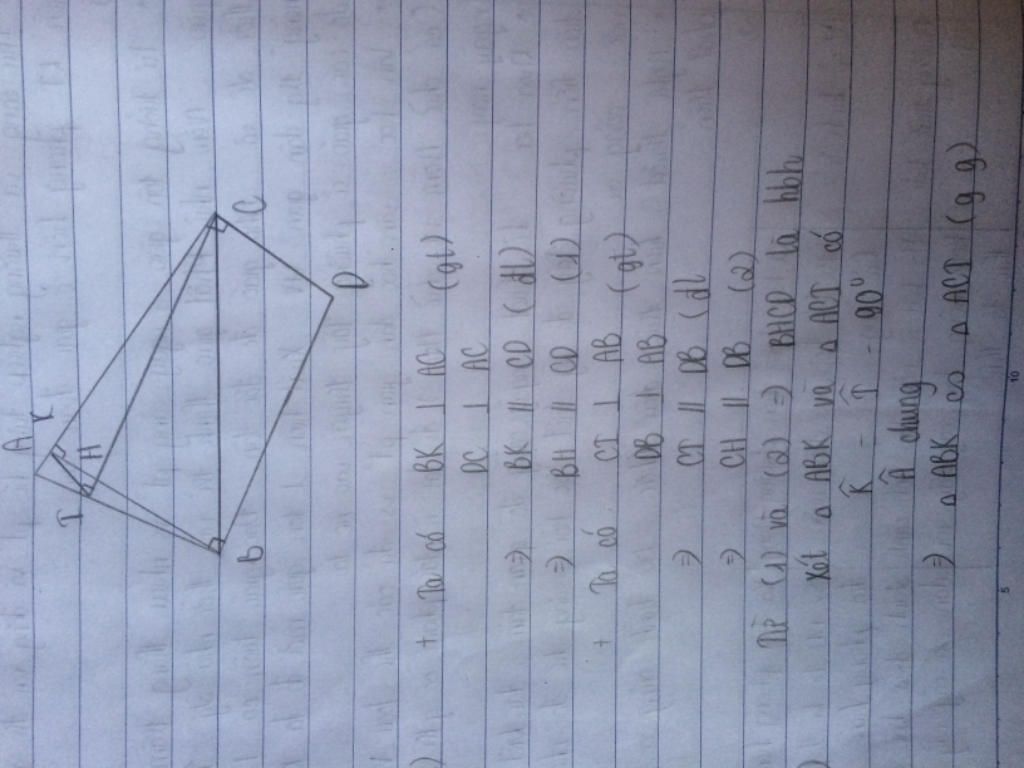 A
K
I
H
B
C
D
+ Ta có BK ⊥ AC (gt)
DC ⊥ AC
=> BK // CD (đl)
=> BH // CD (1)
+ Ta có CI ⊥ AB (gt)
DB ⊥ AB
=> CI // DB (đl
=> CH // DB (2)
Từ (1) và (2) => BHCD là hbh
Xét △ ABK và △ ACI có
K̂ = Î = 90°
Â chung
=> △ ABK ∽ △ ACI (g g)